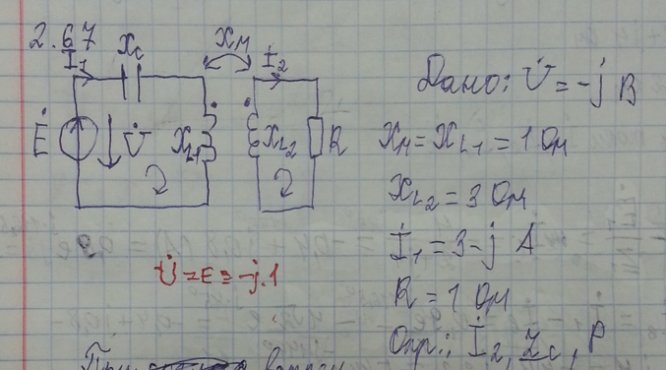 2.67
İ₁ Xc XM İ₂
Ė U̇ XL1 XL2 R
Дано: U̇ = -j В
XM = XL1 = 1 Ом
XL2 = 3 Ом
İ₁ = 3 - j А
R = 1 Ом
Опр.: İ₂, Zc, P
U̇ = E = -j·1
При